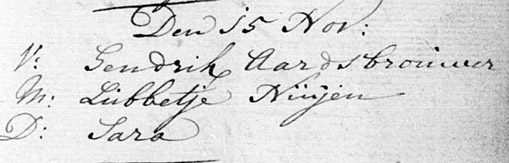 Den 15 Nov:
V: Hendrik Aardsbrouwer
M: Lubbetje Nuijen
D: Sara